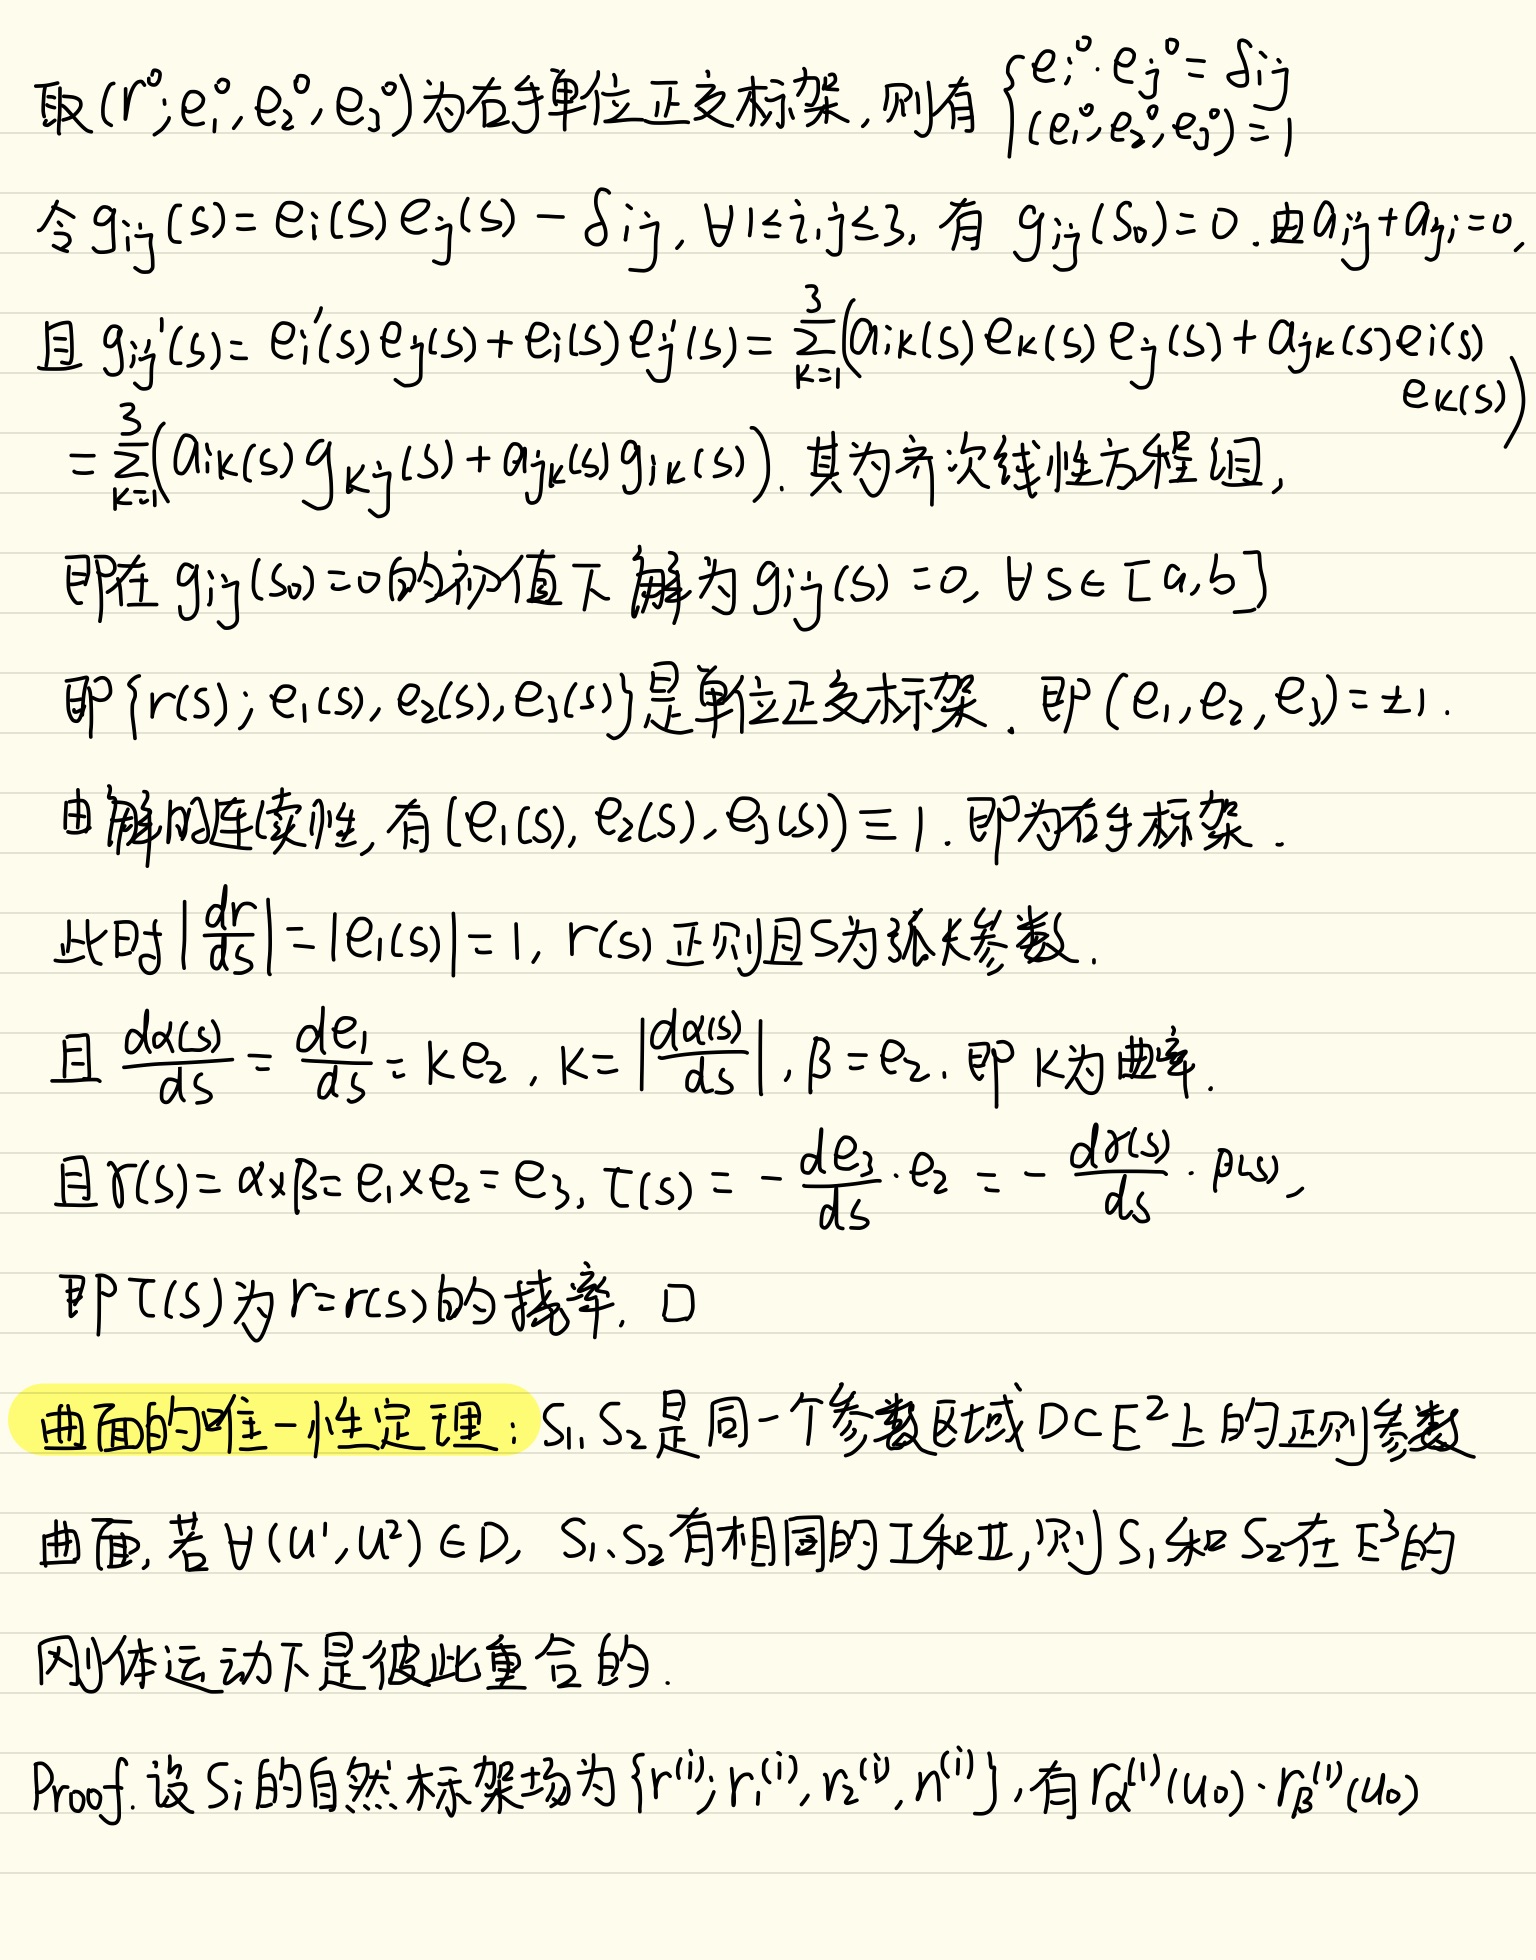 取(r⁰; e₁⁰, e₂⁰, e₃⁰)为右手单位正交标架, 则有 { eᵢ⁰·eⱼ⁰ = δᵢⱼ
(e₁⁰, e₂⁰, e₃⁰) = 1
令 gᵢⱼ(s) = eᵢ(s)eⱼ(s) − δᵢⱼ, ∀1≤i,j≤3, 有 gᵢⱼ(s₀) = 0. 由aᵢⱼ+aⱼᵢ=0,
且 gᵢⱼ'(s) = eᵢ'(s)eⱼ(s) + eᵢ(s)eⱼ'(s) = ∑_{k=1}^{3}(aᵢₖ(s)eₖ(s)eⱼ(s) + aⱼₖ(s)eᵢ(s)
eₖ(s))
= ∑_{k=1}^{3}(aᵢₖ(s)gₖⱼ(s) + aⱼₖ(s)gᵢₖ(s)). 其为齐次线性方程组,
即在 gᵢⱼ(s₀)=0的初值下解为gᵢⱼ(s)=0, ∀s∈[a,b]
即{r(s); e₁(s), e₂(s), e₃(s)}是单位正交标架. 即(e₁,e₂,e₃)=±1.
由解的连续性, 有(e₁(s), e₂(s), e₃(s))≡1. 即为右手标架.
此时|dr/ds| = |e₁(s)| = 1, r(s)正则且s为弧长参数.
且 dα(s)/ds = de₁/ds = ke₂, k=|dα(s)/ds|, β=e₂. 即k为曲率.
且γ(s)=α×β=e₁×e₂=e₃, τ(s) = −de₃/ds·e₂ = −dγ(s)/ds·β(s),
即τ(s)为r=r(s)的挠率. □
曲面的唯一性定理: S₁, S₂是同一个参数区域D⊂E²上的正则参数
曲面, 若∀(u¹,u²)∈D, S₁、S₂有相同的I和II, 则S₁和S₂在E³的
刚体运动下是彼此重合的.
Proof. 设Sᵢ的自然标架场为{r⁽ⁱ⁾; r₁⁽ⁱ⁾, r₂⁽ⁱ⁾, n⁽ⁱ⁾}, 有r_α⁽¹⁾(u₀)·r_β⁽¹⁾(u₀)